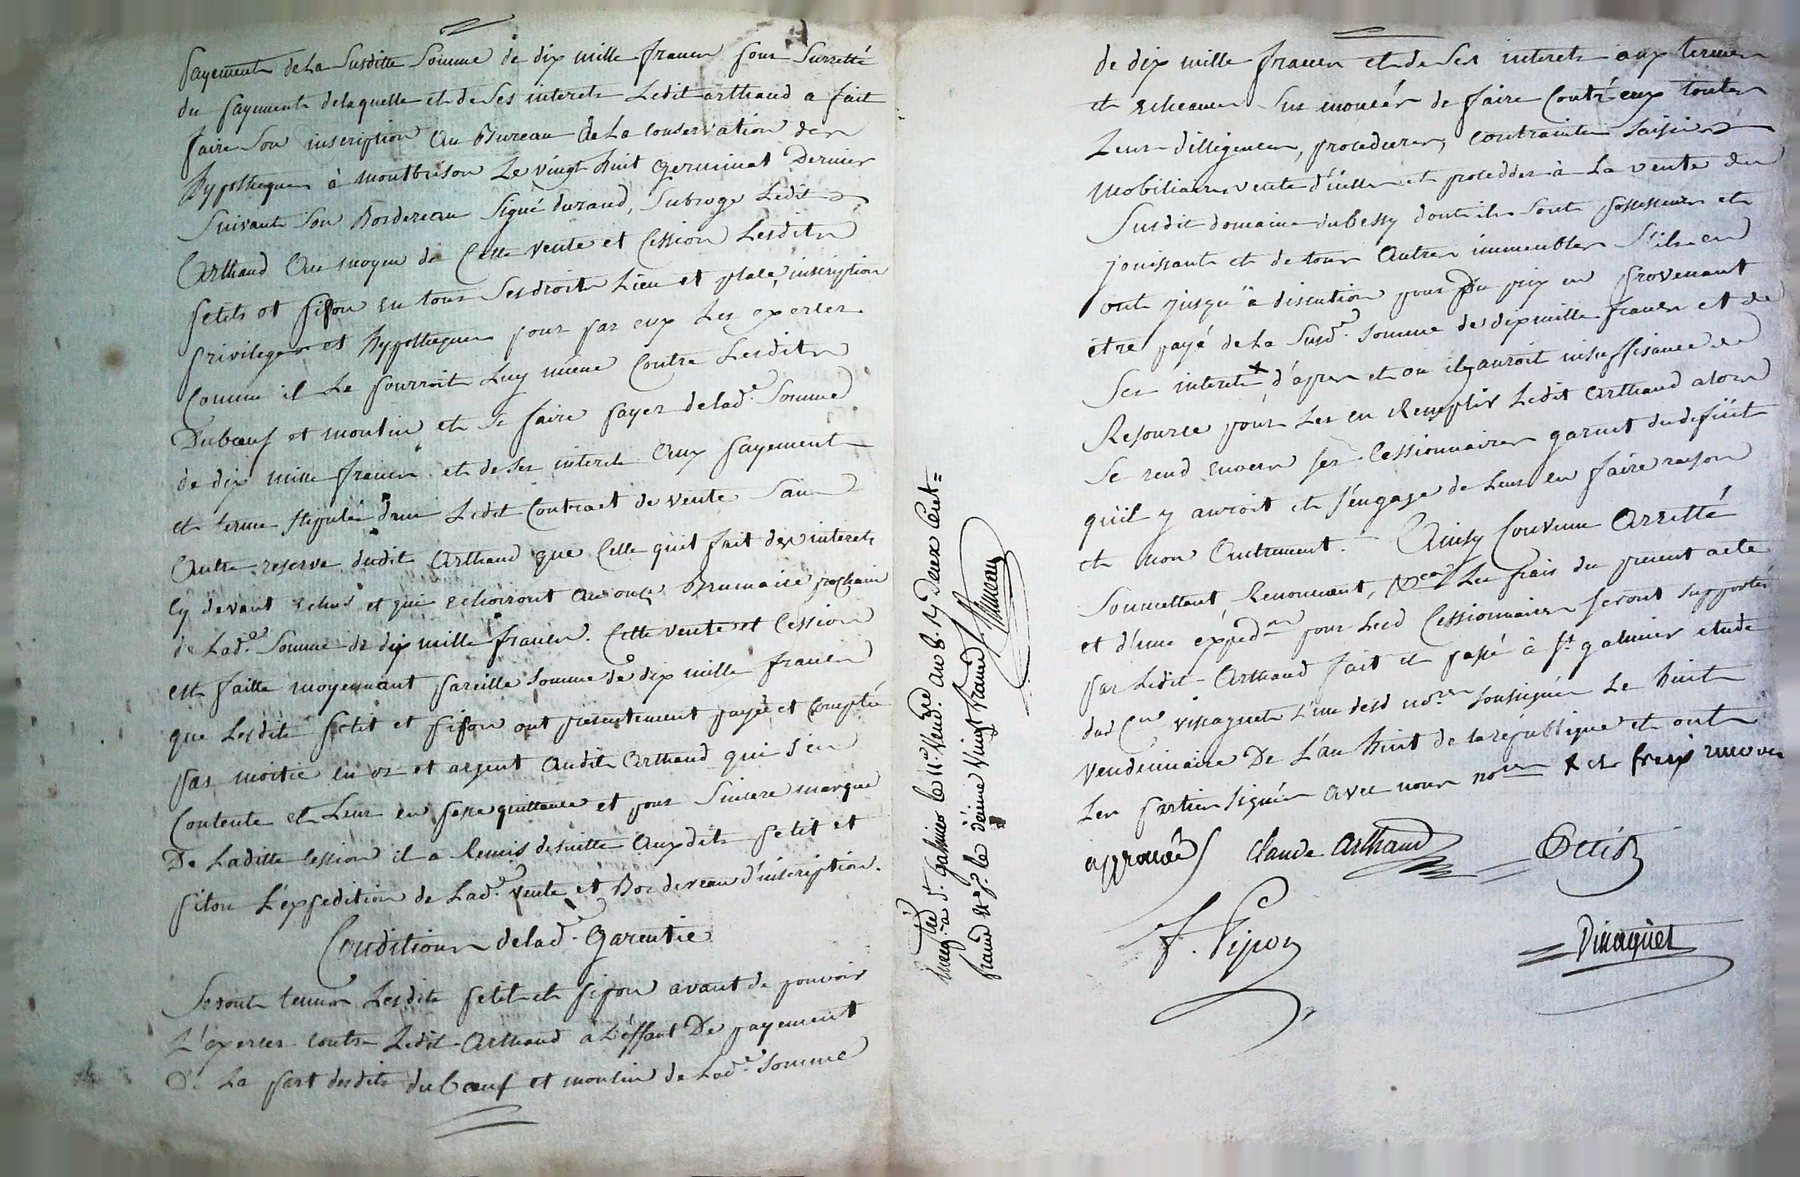 payement de la susditte somme de dix mille francs pour surretté
du payement de laquelle et de ses interets Ledit arthaud a fait
faire son inscription au Bureau de La conservation des
hypotheques à montbrison Le vingt huit germinal Dernier
suivant son Bordereau signé durand, subroge Ledit
Arthaud au moyen de Cette vente et Cession Lesdits
petit et pipon en tous ses droits Lieu et place, inscription
privileges et hypotheques pour par eux Les exercer
Comme il Le pourroit Luy même Contre Lesdits
Duboeuf et moulin et se faire payer delad.e Somme
de dix mille francs et de ses interets aux payement
et terme stipulés dans Ledit Contract de vente sans
autre reserve dudit Arthaud que Celle qu'il fait des interets
Cy devant echus et qui echoiront au onze Brumaire prochain
de Lad.e Somme de dix mille francs. Cette vente et Cession
est faitte moyennant pareille somme de dix mille francs
que Lesdits petit et pipon ont presentement payé et Compté
par moitié en or et argent audit Arthaud qui s'en
Contente et Leur en passe quittance et pour sincere marque
De Laditte Cession il a Remis desuitte auxdits petit et
pipon L'expedition de Lad.e vente et Bordereau d'inscription.
Conditions delad.e Garentie
Seront tenus Lesdits petit et pipon avant de pouvoir
L'exercer contre Ledit Arthaud à deffaut De payement
De La part desdits duboeuf et moulin de Lad.e Somme
Enreg.tré à S.t galmier le 11 Vend.re an 8. Rç Deux Cent
francs et p.r le dixieme Vingt francs
de dix mille francs et de ses interets aux termes
et echeances sus enoncés de faire Contr'eux toutes
Leurs dilligences, procedures, contraintes saisies
mobiliaires vente d'icelles et procedder à La vente du
Susdit domaine dubessy dont ils sont possesseurs et
jouissants et de tous autres immeubles s'ils en
ont jusqu'à discution pour du prix en provenant
etre payé de La susd.e somme de dix mille francs et de
ses interets + d'apres et ou il y auroit insuffisance de
Resource pour Les en Remplir Ledit Arthaud alors
se rend envers ses Cessionnaires garent du deficit
qu'il y auroit et s'engage de Leur en faire raison
et non Autrement. Ainsy Convenu Arretté
Soumettant, Renonceant, &ca Les frais du present acte
et d'une exped.on pour Lesd Cessionnaires seront supportés
par Ledit Arthaud fait et passé à S.t galmier etude
dud C.en vinagnet L'un desd no.res soussignés Le huit
vendémiaire De L'an huit de la république et ont
Les parties signés avec nous no.res + et freix
approuvé Claude Arthaud Petit
f. Pipon
Vinagnet